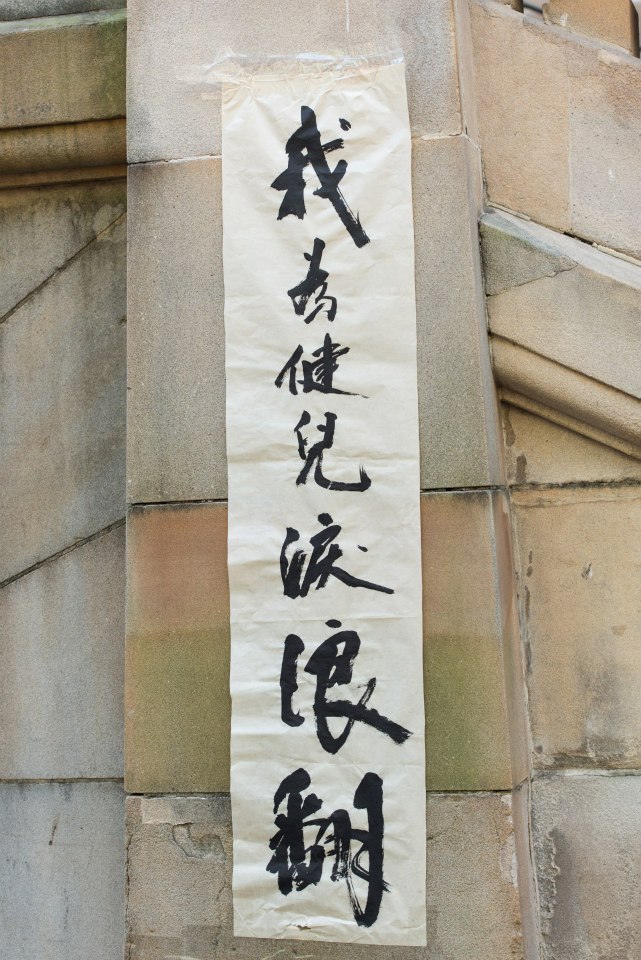 我為健兒淚浪翻